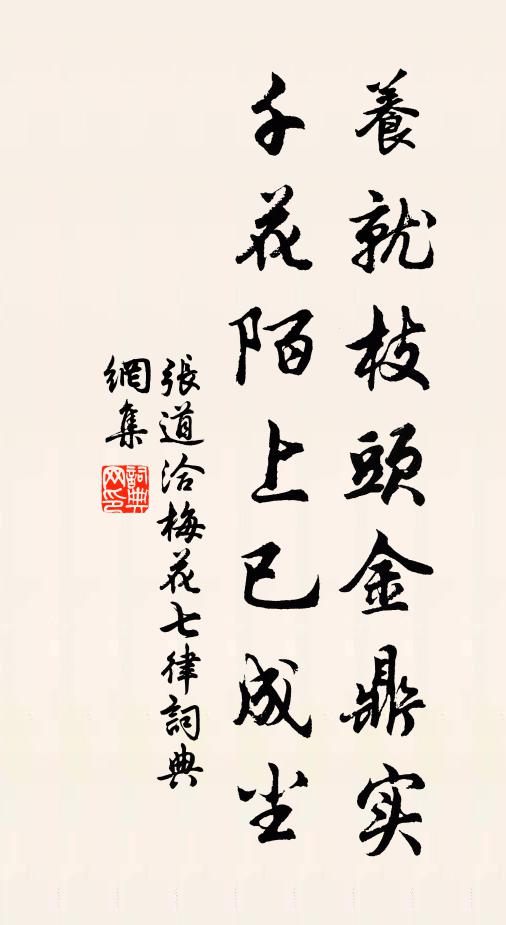 養就枝頭金鼎实
千花陌上已成尘
張道洽梅花七律詞典
網集
詞典
网印